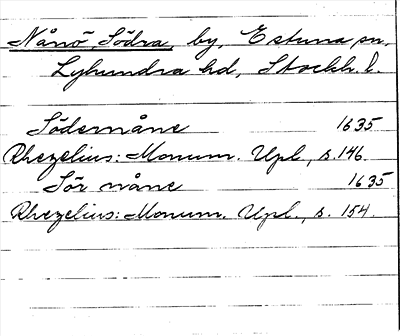 Nånö, Södra, by, Estuna sn,
Lyhundra hd, Stockh. l.
Södernåne 1635
Rhezelius: Monum. Upl., s. 146.
Sör nåne 1635
Rhezelius: Monum. Upl., s. 154.